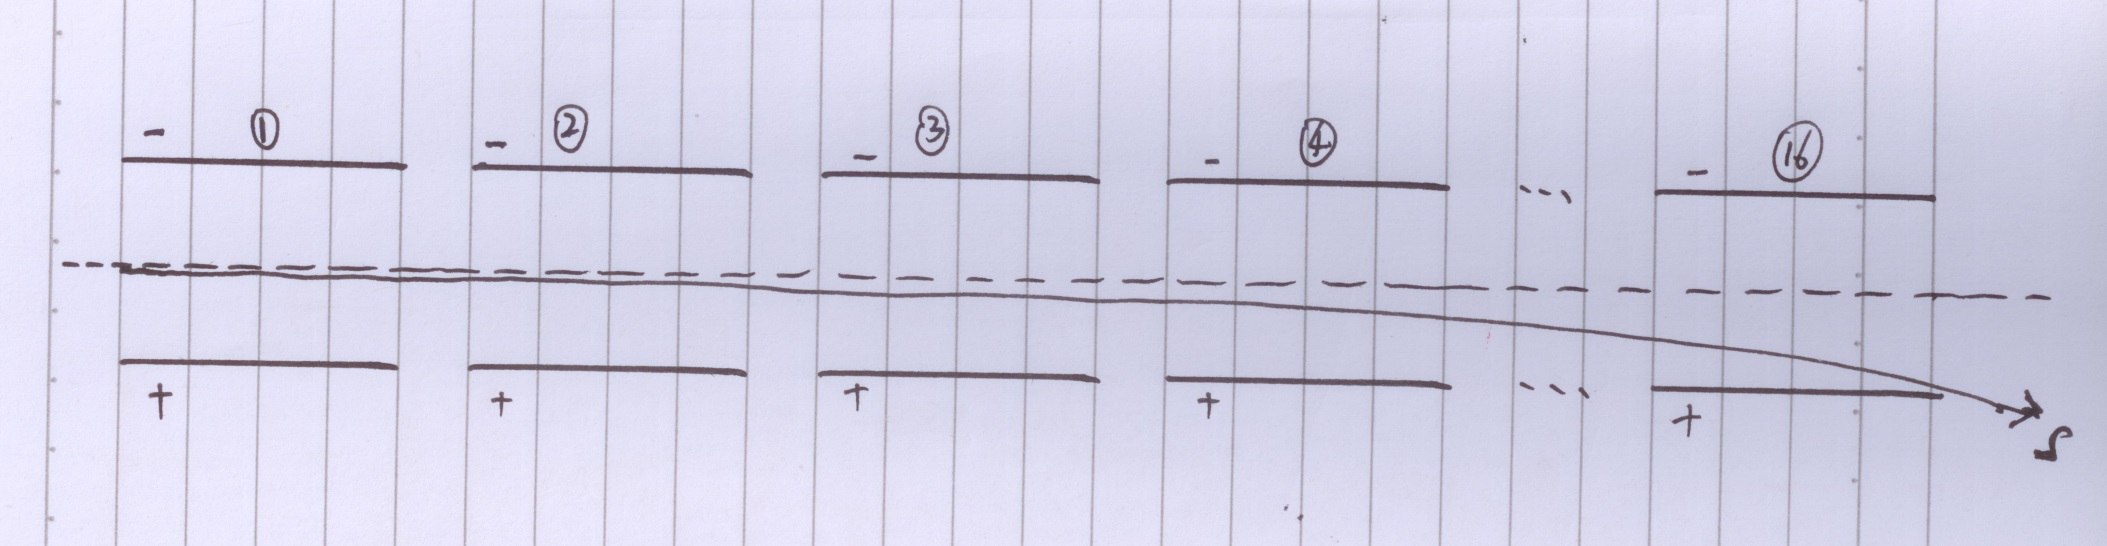 - ① - ② - ③ - ④ - ⑯
... 
+ + + + ... +